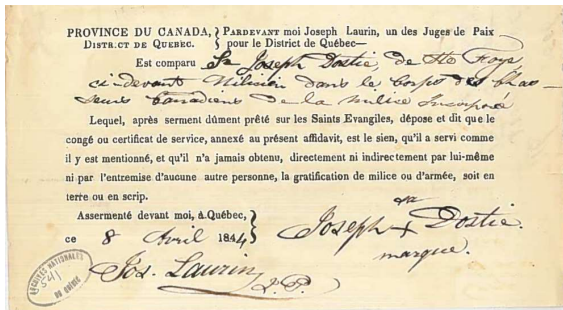 PROVINCE DU CANADA, } PARDEVANT moi Joseph Laurin, un des Juges de Paix
DISTRICT DE QUEBEC. } pour le District de Québec—
Est comparu Sr Joseph Dostie de Ste Foye
ci-devant Milicien dans le Corps des Chas-
seurs Canadiens de la milice Incorporé
Lequel, après serment dûment prêté sur les Saints Evangiles, dépose et dit que le
congé ou certificat de service, annexé au présent affidavit, est le sien, qu'il a servi comme
il y est mentionné, et qu'il n'a jamais obtenu, directement ni indirectement par lui-même
ni par l'entremise d'aucune autre personne, la gratification de milice ou d'armée, soit en
terre ou en scrip.
Assermenté devant moi, à Québec, }
ce 8 Avril 1844 }
sa
Joseph + Dostie.
marque.
Jos. Laurin
J. P.
ARCHIVES NATIONALES
DU QUÉBEC